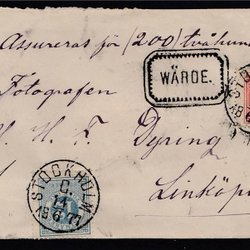 Assureras för (200) tvåhun
WÄRDE.
Fotografen
H. F. Dyring
Linköp
STOCKHOLM
C.
14
6 77